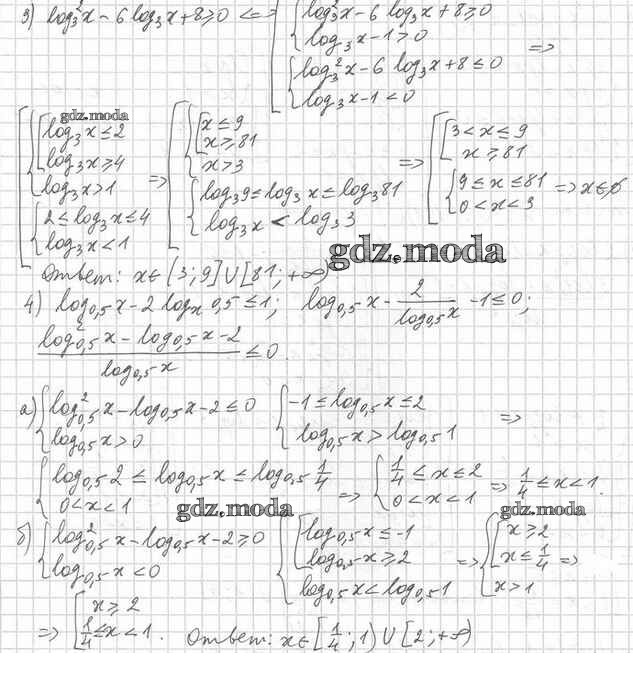 3) log₃²x - 6 log₃x + 8 ≥ 0 <=> [ { log₃²x - 6 log₃x + 8 ≥ 0
log₃x - 1 > 0 =>
{ log₃²x - 6 log₃x + 8 ≤ 0
log₃x - 1 < 0
gdz.moda
[ { [ log₃x ≤ 2
log₃x ≥ 4
log₃x > 1
{ 2 ≤ log₃x ≤ 4
log₃x < 1
=> [ { [ x ≤ 9
x ≥ 81
x > 3
{ log₃9 ≤ log₃x ≤ log₃81
log₃x < log₃3
=> [ [ 3 < x ≤ 9
x ≥ 81
{ 9 ≤ x ≤ 81
0 < x < 3 => x ∈ ø
gdz.moda
Ответ: x ∈ (3; 9] ∪ [81; +∞)
4) log₀,₅x - 2 logₓ0,5 ≤ 1; log₀,₅x - 2/log₀,₅x - 1 ≤ 0;
(log²₀,₅x - log₀,₅x - 2)/log₀,₅x ≤ 0.
а) { log²₀,₅x - log₀,₅x - 2 ≤ 0
log₀,₅x > 0
{ -1 ≤ log₀,₅x ≤ 2
log₀,₅x > log₀,₅1 =>
{ log₀,₅2 ≤ log₀,₅x ≤ log₀,₅ 1/4
0 < x < 1
=> { 1/4 ≤ x ≤ 2
0 < x < 1 => 1/4 ≤ x < 1.
gdz.moda
gdz.moda
б) { log²₀,₅x - log₀,₅x - 2 ≥ 0
log₀,₅x < 0
{ [ log₀,₅x ≤ -1
log₀,₅x ≥ 2
log₀,₅x < log₀,₅1
=> { [ x ≥ 2
x ≤ 1/4 =>
x > 1
=> [ x ≥ 2
1/4 ≤ x < 1. Ответ: x ∈ [1/4; 1) ∪ [2; +∞)